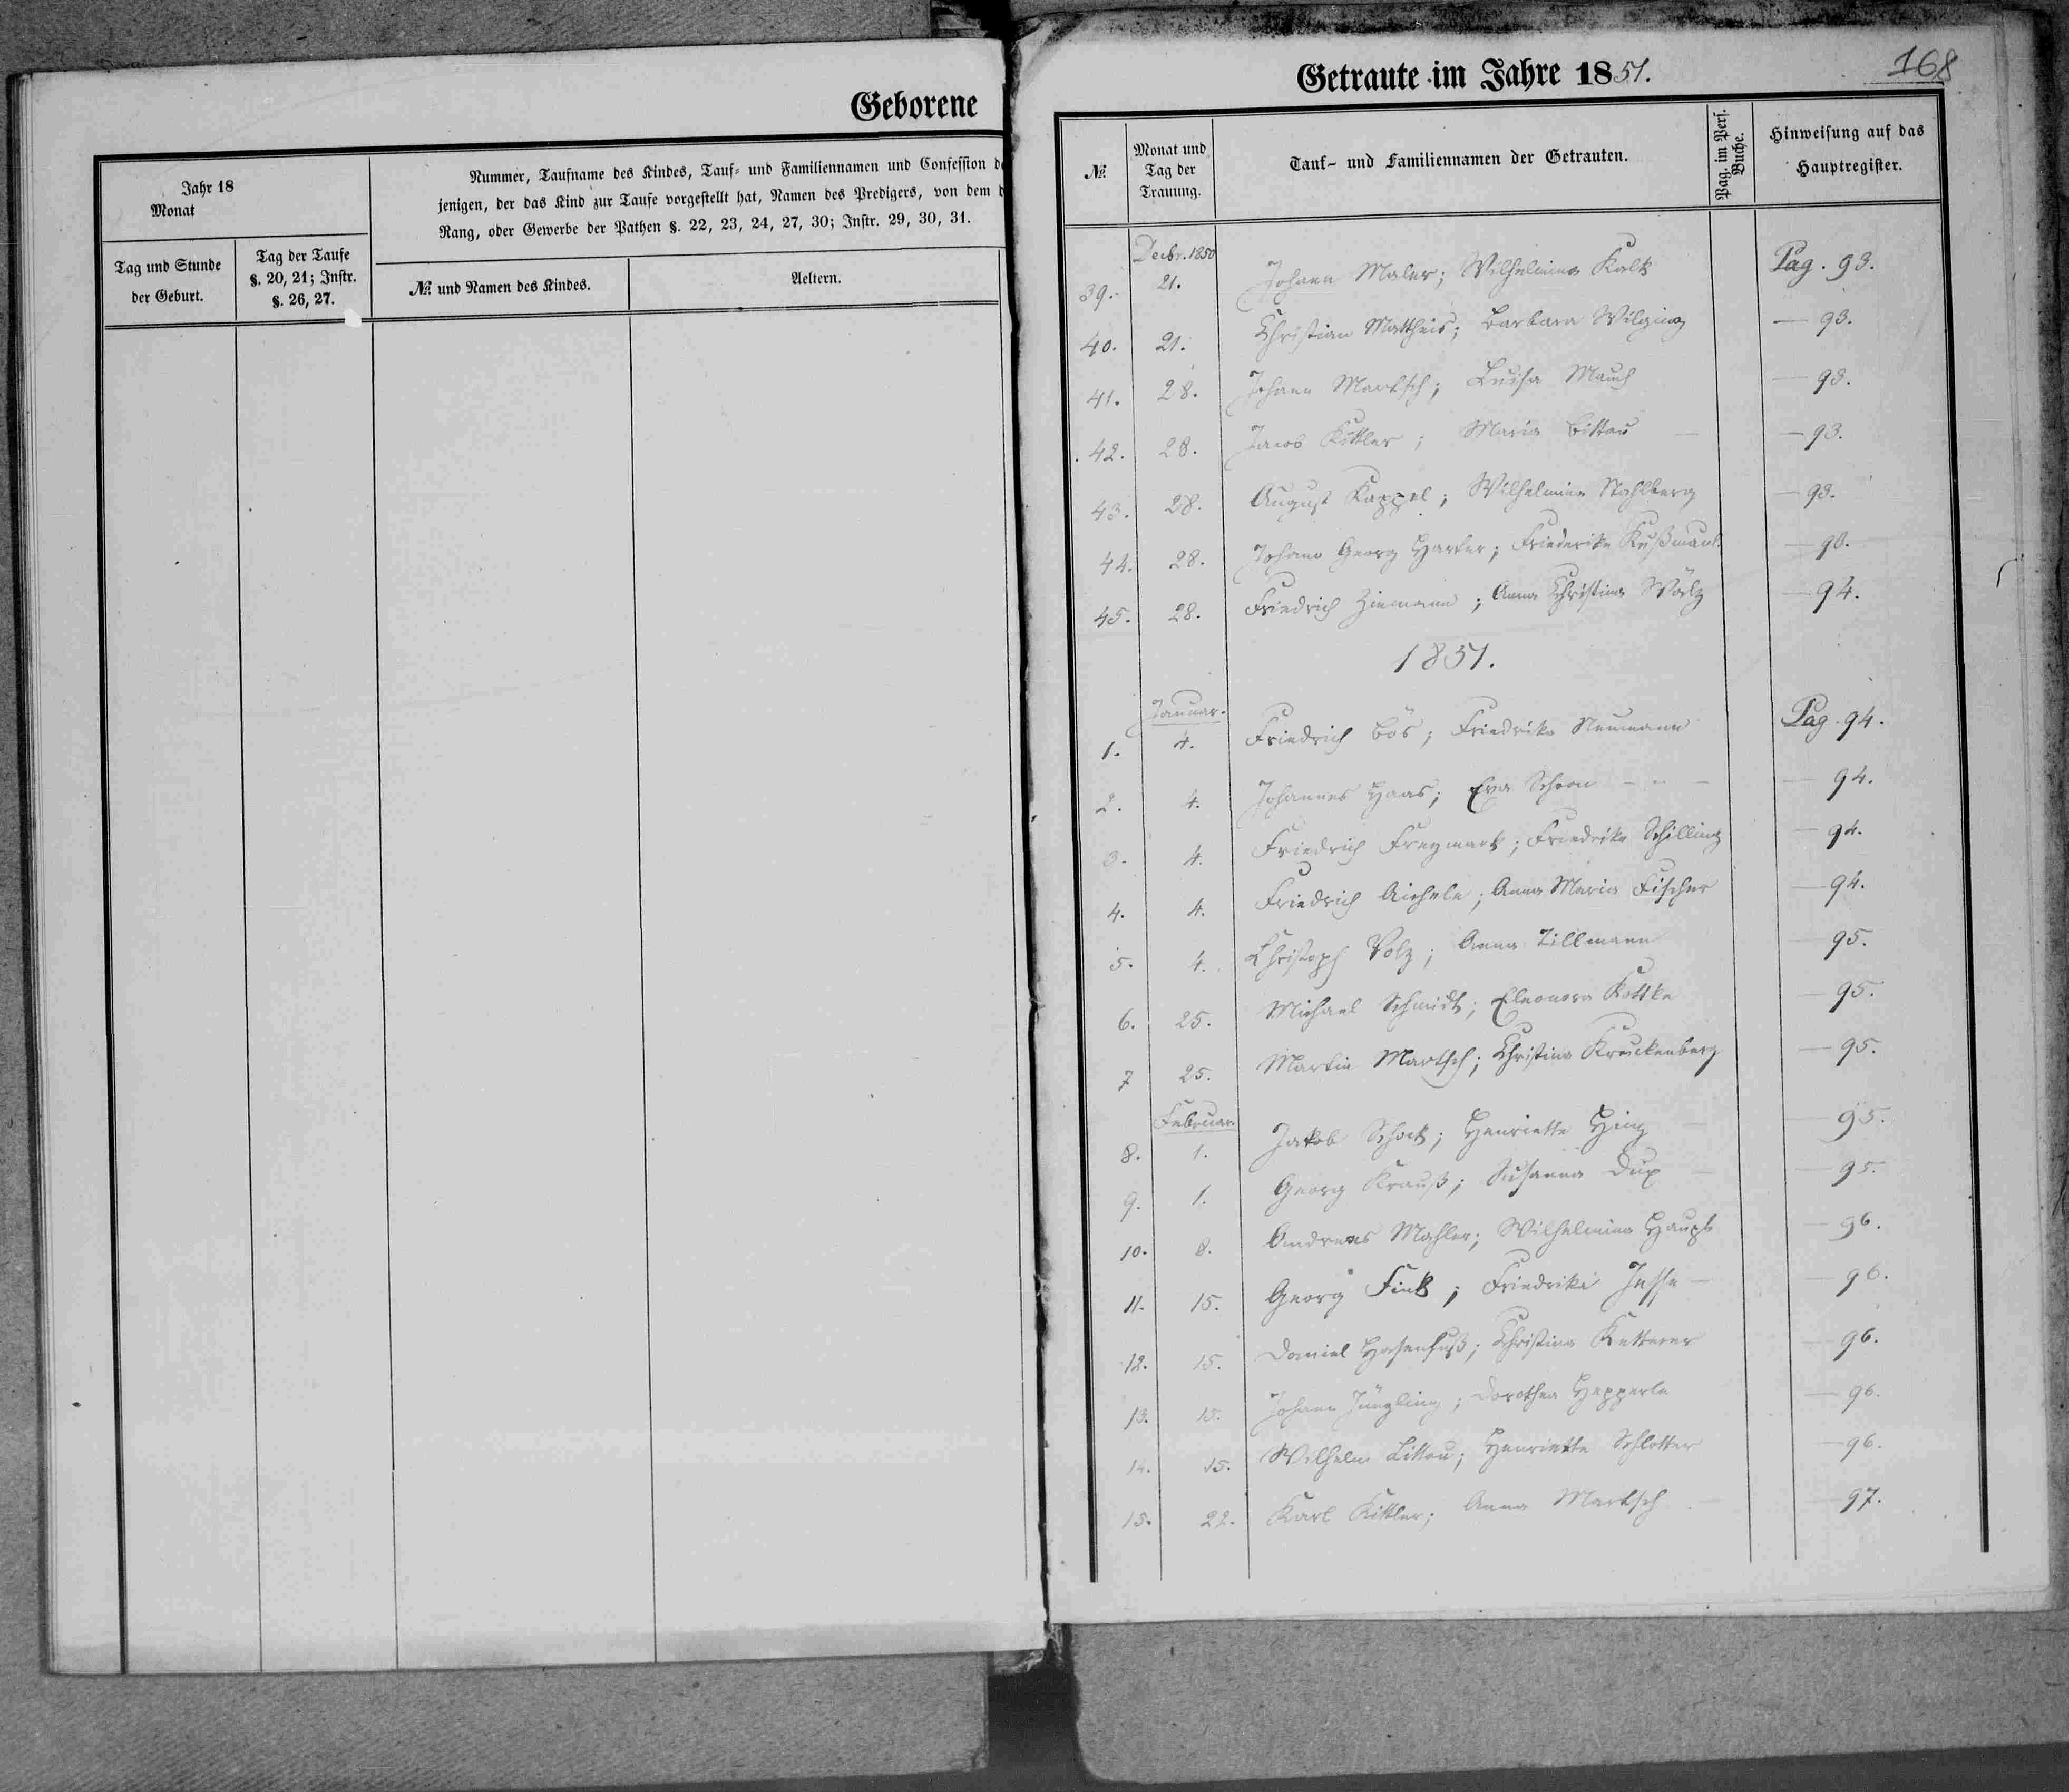 Geborene
Jahr 18
Monat
Nummer, Taufname des Kindes, Tauf- und Familiennamen und Confession
jenigen, der das Kind zur Taufe vorgestellt hat, Namen des Predigers, von dem
Rang, oder Gewerbe der Pathen §. 22, 23, 24, 27, 30; Instr. 29, 30, 31.
Tag und Stunde
der Geburt.
Tag der Taufe
§. 20, 21; Instr.
§. 26, 27.
№ und Namen des Kindes.
Aeltern.
168
Getraute im Jahre 1851.
№
Monat und
Tag der
Trauung.
Tauf- und Familiennamen der Getrauten.
Pag. im Pers.
Buche.
Hinweisung auf das
Hauptregister.
Decbr. 1850
39. 21. Johann Maler; Wilhelmina Kalk Pag. 93.
40. 21. Christian Mattheis; Barbara Wilging — 93.
41. 28. Johann Martsch; Luisa Mauch — 93.
42. 28. Jacob Kittler; Maria Bittau — 93.
43. 28. August Kappel; Wilhelmina Stahlberg — 93.
44. 28. Johann Georg Harter; Friederike Kußmaul. — 93.
45. 28. Friedrich Ziemann; Anna Christina Wölz — 94.
1851.
Januar.
1. 4. Friedrich Bös; Friedrike Neumann Pag. 94.
2. 4. Johannes Haas; Eva Schoon — 94.
3. 4. Friedrich Freymark; Friedrike Schilling — 94.
4. 4. Friedrich Aichele; Anna Maria Fischer — 94.
5. 4. Christoph Volz; Anna Tillmann 95.
6. 25. Michael Schmidt; Eleonora Kottke — 95.
7 25. Martin Martsch; Christina Kruckenberg — 95.
Februar
8. 1. Jakob Schock; Henriette Hinz — 95.
9. 1. Georg Krauß; Susanna Dux — 95.
10. 8. Andreas Mahler; Wilhelmina Haupt — 96.
11. 15. Georg Fink; Friedrike Jesse — 96.
12. 15. Daniel Hasenfuß; Christina Ketterer 96.
13. 15. Johann Jüngling; Dorothea Hepperle — 96.
14. 15. Wilhelm Littau; Henriette Schlotter — 96.
15. 22. Karl Kittler; Anna Martsch — 97.